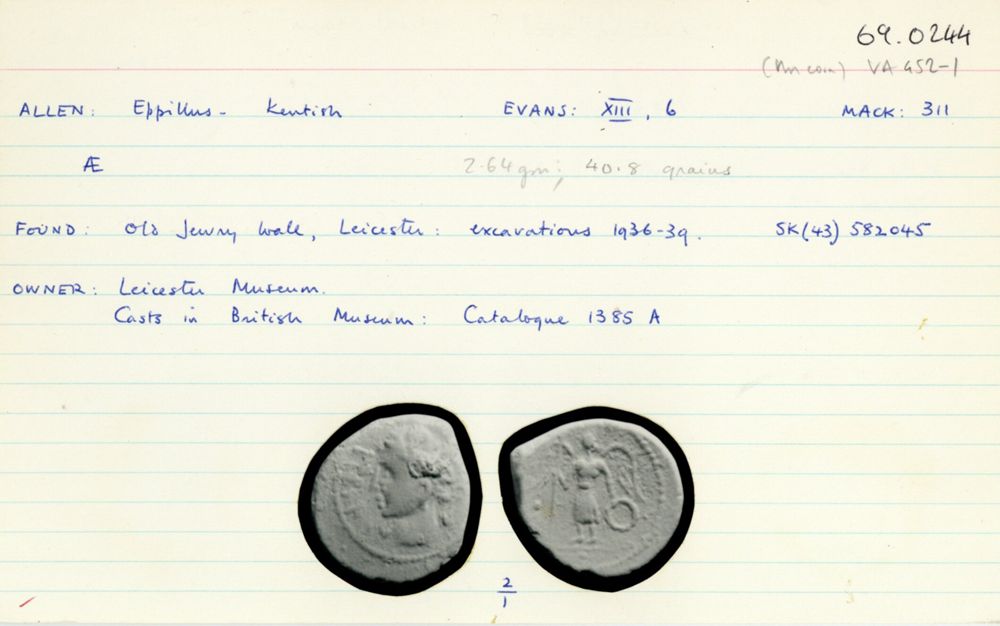 69.0244
VA 452-1
ALLEN: Eppillus - Kentish EVANS: XIII, 6 MACK: 311
Æ 2.64gm; 40.8 grains
FOUND: Old Jewry Wall, Leicester: excavations 1936-39. SK(43) 582045
OWNER: Leicester Museum.
Casts in British Museum: Catalogue 1385 A
2
1